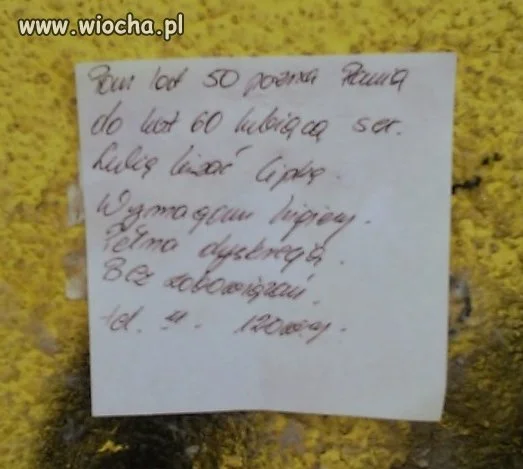 www.wiocha.pl
Pan lat 50 pozna Panią
do lat 60 lubiącą sex.
Lubię lizać cipkę.
Wymagam higieny.
Pełna dyskrecja.
Bez zobowiązań.
tel. 120